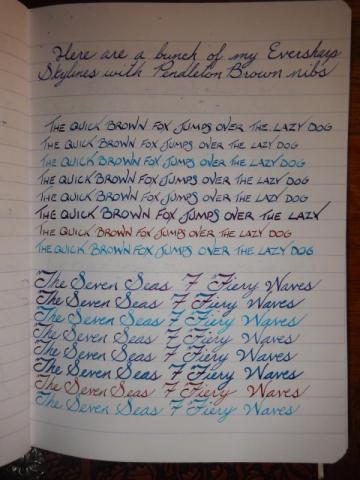 Here are a bunch of my Eversharp
Skylines with Pendleton Brown nibs
THE QUICK BROWN FOX JUMPS OVER THE LAZY DOG
THE QUICK BROWN FOX JUMPS OVER THE LAZY DOG
THE QUICK BROWN FOX JUMPS OVER THE LAZY DOG
THE QUICK BROWN FOX JUMPS OVER THE LAZY DOG
THE QUICK BROWN FOX JUMPS OVER THE LAZY DOG
THE QUICK BROWN FOX JUMPS OVER THE LAZY
THE QUICK BROWN FOX JUMPS OVER THE LAZY DOG
THE QUICK BROWN FOX JUMPS OVER THE LAZY DOG
The Seven Seas 7 Fiery Waves
The Seven Seas 7 Fiery Waves
The Seven Seas 7 Fiery Waves
The Seven Seas 7 Fiery Waves
The Seven Seas 7 Fiery Waves
The Seven Seas 7 Fiery Waves
The Seven Seas 7 Fiery Waves
The Seven Seas 7 Fiery Waves